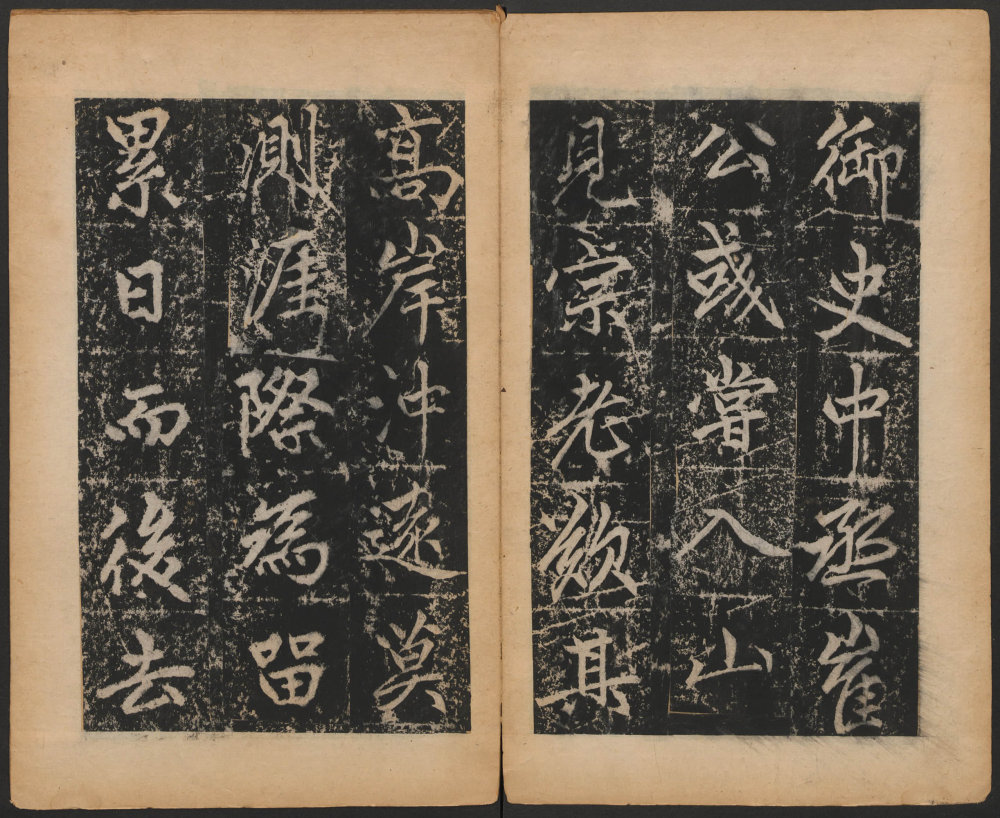 御史中丞崔
公彧嘗入山
見宗老歎其
高岸沖遠莫
測涯際為留
累日而後去